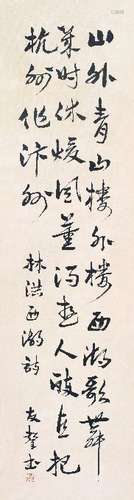 山外青山樓外樓西湖歌舞
幾时休煖風薰得遊人醉直把
杭州作汴州
林洪西湖詩
友书